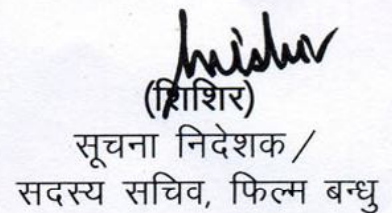 (शिशिर)
सूचना निदेशक /
सदस्य सचिव, फिल्म बन्धु